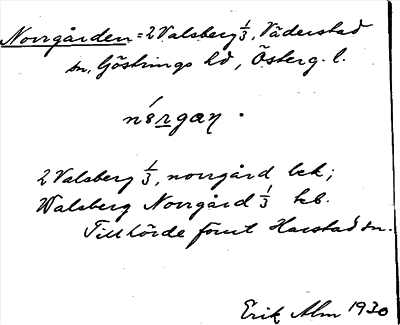 Norrgården = 2 Valsberg 1/3, Väderstad
sn, Göstrings hd, Österg. l.
nérgaṉ .
2 Valsberg 1/3, norrgård lek;
Walsberg Norrgård 1/3 kb.
Tillhörde förut Harstad sn.
Erik Alm 1930